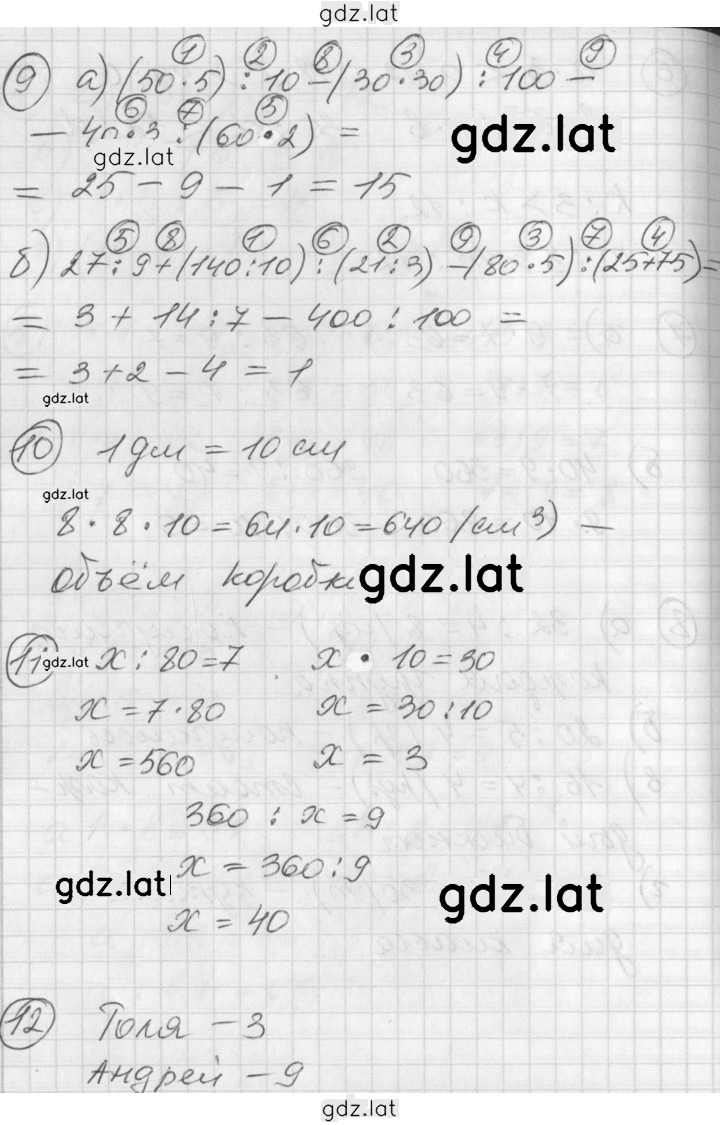 gdz.lat
⑨ а) (50·5) : 10 − (30·30) : 100 −
① ② ⑧ ③ ④ ⑨
− 40·3 : (60·2) =
⑥ ⑦ ⑤
gdz.lat
gdz.lat
= 25 − 9 − 1 = 15
⑤ ⑧ ① ⑥ ② ⑨ ③ ⑦ ④
б) 27:9+(140:10):(21:3)−(80·5):(25+75)=
= 3 + 14 : 7 − 400 : 100 =
= 3+2 − 4 = 1
gdz.lat
⑩ 1 дм = 10 см
gdz.lat
8 · 8 · 10 = 64·10 = 640 (см³) —
объём коробки
gdz.lat
⑪ x : 80=7 x · 10=30
gdz.lat
x = 7·80 x = 30:10
x = 560 x = 3
360 : x = 9
x = 360:9
gdz.lat
gdz.lat
x = 40
⑫ Толя − 3
Андрей − 9
gdz.lat